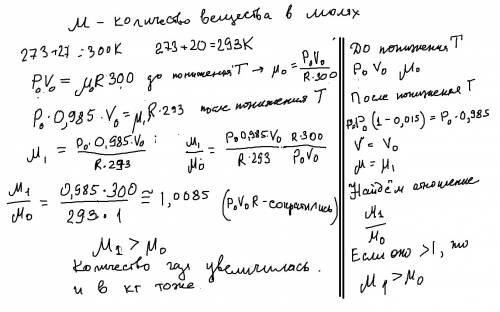 М - количество вещества в молях
273+27 = 300K 273+20=293K
P₀V₀ = μ₀R 300 до понижения T → μ₀ = P₀V₀ / R·300
P₀·0,985·V₀ = μ₁R·293 после понижения T
μ₁ = P₀·0,985·V₀ / R·293 ; μ₁/μ₀ = P₀·0,985·V₀ / R·293 · R·300 / P₀V₀
μ₁/μ₀ = 0,985·300 / 293·1 ≅ 1,0085 (P₀V₀R-сократились)
μ₁ > μ₀
Количество газа увеличилась.
и в кг тоже.
До понижения T
P₀ V₀ μ₀
После понижения T
P₀(1-0,015) = P₀·0,985
V = V₀
μ = μ₁
Найдём отношение
μ₁/μ₀
Если оно >1, то
μ₁ > μ₀